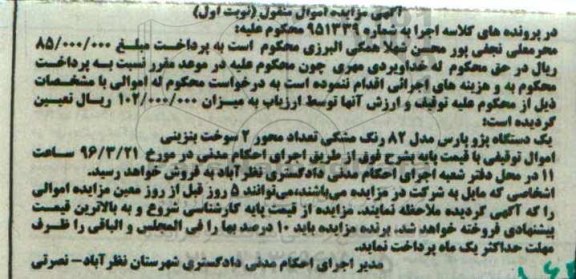 آگهی مزایده اموال منقول (نوبت اول)
در پرونده های کلاسه اجرا به شماره ۹۵۱۳۳۹ محکوم علیه:
محرمعلی نجفی پور محسن شهلا همکی البرزی محکوم است به پرداخت مبلغ ۸۵/۰۰۰/۰۰۰
ریال در حق محکوم له خداویردی مهری چون محکوم علیه در موعد مقرر نسبت به پرداخت
محکوم به و هزینه های اجرائی اقدام ننموده است به درخواست محکوم له اموالی با مشخصات
ذیل از محکوم علیه توقیف و ارزش آنها توسط ارزیاب به میزان ۱۰۲/۰۰۰/۰۰۰ ریال تعیین
گردیده است:
یک دستگاه پژو پارس مدل ۸۲ رنگ مشکی تعداد محور ۲ سوخت بنزینی
اموال توقیفی با قیمت پایه بشرح فوق از طریق اجرای احکام مدنی در مورخ ۹۶/۳/۲۱ ساعت
۱۱ در محل دفتر شعبه اجرای احکام مدنی دادگستری نظرآباد به فروش خواهد رسید.
اشخاصی که مایل به شرکت در مزایده می‌باشند،می‌توانند ۵ روز قبل از روز معین مزایده اموالی
را که آگهی گردیده ملاحظه نمایند. مزایده از قیمت پایه کارشناسی شروع و به بالاترین قیمت
پیشنهادی فروخته خواهد شد. برنده مزایده باید ۱۰ درصد بها را فی المجلس و الباقی را ظرف
مهلت حداکثر یک ماه پرداخت نماید.
مدیر اجرای احکام مدنی دادگستری شهرستان نظرآباد- نصرتی